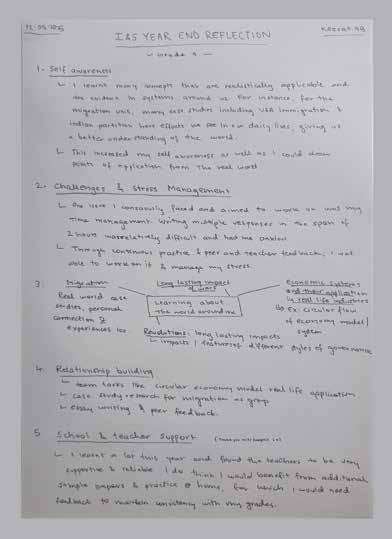 I&S YEAR END REFLECTION
Grade 9
1. Self awareness
I learnt many concepts that are realistically applicable and
are evident in systems around us. For instance, for the
migration unit, many case studies including USA immigration &
indian partition have effects we see in our daily lives, giving us
a better understanding of the world.
This increased my self awareness as well as I could draw
points of application from the real word
2. Challenges & Stress Management
One issue I consciously faced and aimed to work on was my
time management. Writing multiple responses in the span of
2 hours was relatively difficult and had me anxious
Through continuous practice & peer and teacher feedback, I was
able to work on it & manage my stress.
3.
Migration
Real world case
studies, personal
connection &
experiences too.
Long lasting impact
of wars
Learning about
the world around me
Economic systems
and their application
in real life industries
Ex: Circular flow
of economy model/
system
Revolutions: long lasting impacts
impacts / features of different styles of governance
4. Relationship building
team tasks like circular economy model real life application
case study research for migration as group
essay writing & peer feedback.
5. School & teacher support
I learnt a lot this year and found the teachers to be very
supportive & reliable. I do think I would benefit from additional
sample papers & practice @ home, for which I would need
feedback to maintain consistency with my grades.